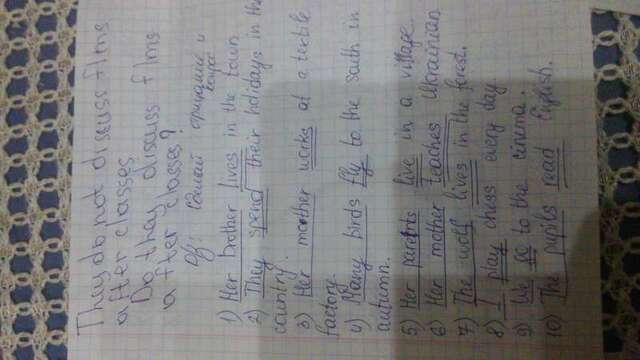 They do not discuss films
after classes
Do they discuss films
after classes?
Сделай отрицание и
вопрос
1) Her brother lives in the town
2) They spend their holidays in the
country.
3) Her mother works at a textile
factory.
4) Many birds fly to the south in
autumn.
5) Her parents live in a village.
6) Her mother teaches Ukrainian
7) The wolf lives in the forest.
8) I play chess every day.
9) We go to the cinema.
10) The pupils read English.